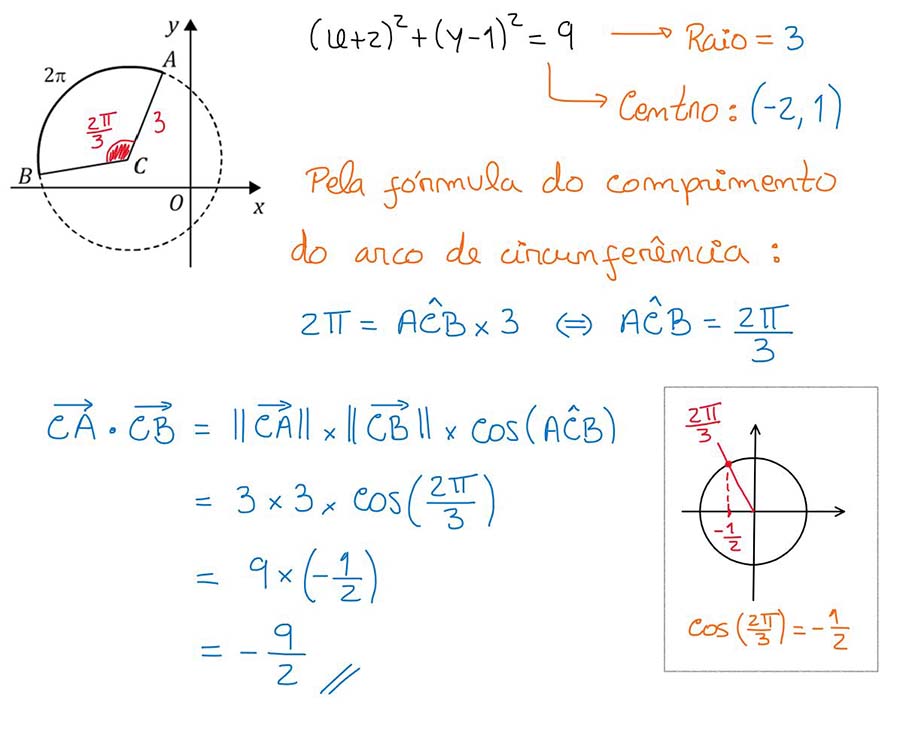 y
A
2π
2π/3
3
C
B
O
x
(x+2)² + (y-1)² = 9 → Raio = 3
→ Centro : (-2, 1)
Pela fórmula do comprimento
do arco de circunferência :
2π = AĈB × 3 ⇔ AĈB = 2π/3
CA⃗ · CB⃗ = ||CA⃗|| × ||CB⃗|| × cos(AĈB)
= 3 × 3 × cos(2π/3)
= 9 × (-1/2)
= - 9/2 //
2π/3
-1/2
cos(2π/3) = -1/2